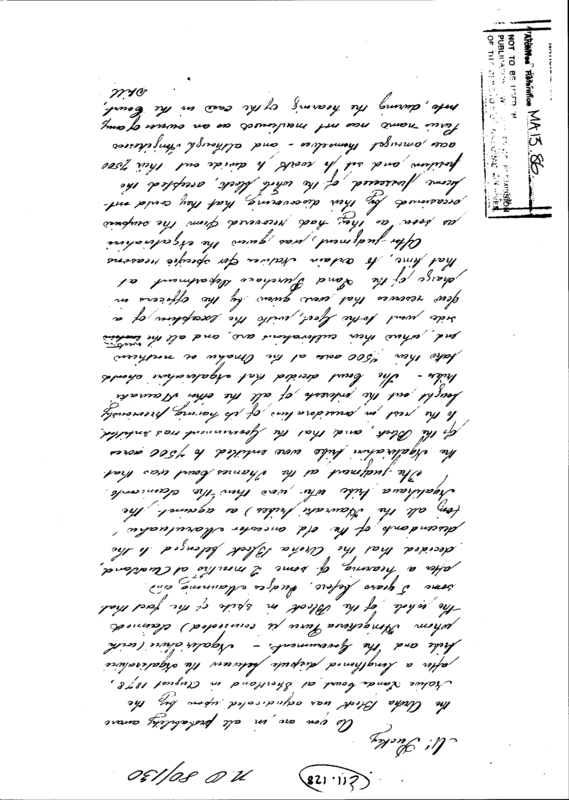 (E11.128) N.O 80/130
Mr. Puckey
As you are, in all probability aware
the Aroha Block was adjudicated upon by the
Native Lands Court at Shortland in August 1878,
after a lengthened dispute between the Ngatirahiri
tribe and the Government. - Ngatirahiri (with
whom Hingohura Purui is connected) claimed
the whole of the Block in spite of the fact that
some 7 years before, Judges
after a hearing of some 2 months at Auckland,
decided that the Aroha Block belonged to the
descendants of the old ancestor "Marutuahu"
(or all the Hauraki tribes) as against the
Ngatihaua tribe who were then the claimants
The judgment at the Thames Court was that
the Ngatirahiri tribe were entitled to 7,500 acres
of the Block and that the Government was entitled
to the rest in consideration of its having previously
bought out the interests of all the other Hauraki
tribes - The Court decided that Ngatirahiri should
take their 7,500 acres at the Omahu or northern
end, where their cultivations are and all the southern
side went to the Govt, with the exception of a
few reserves that were given by the officers in
charge of the Land Purchase Department at
that time, to certain Natives for specific reasons
After judgment was given the Ngatirahiri
as soon as they had recovered from the surprise
occasioned by their discovering that they could not
become possessed of the whole Block accepted the
position and set to work to divide out their 7,500
acres amongst themselves - and although Hingohura
Purui's name was not mentioned as an owner of any
note, during the hearing of the case in the Court,
Still
MA 13 86.
NOT TO BE
PUBLICATION
OF THE